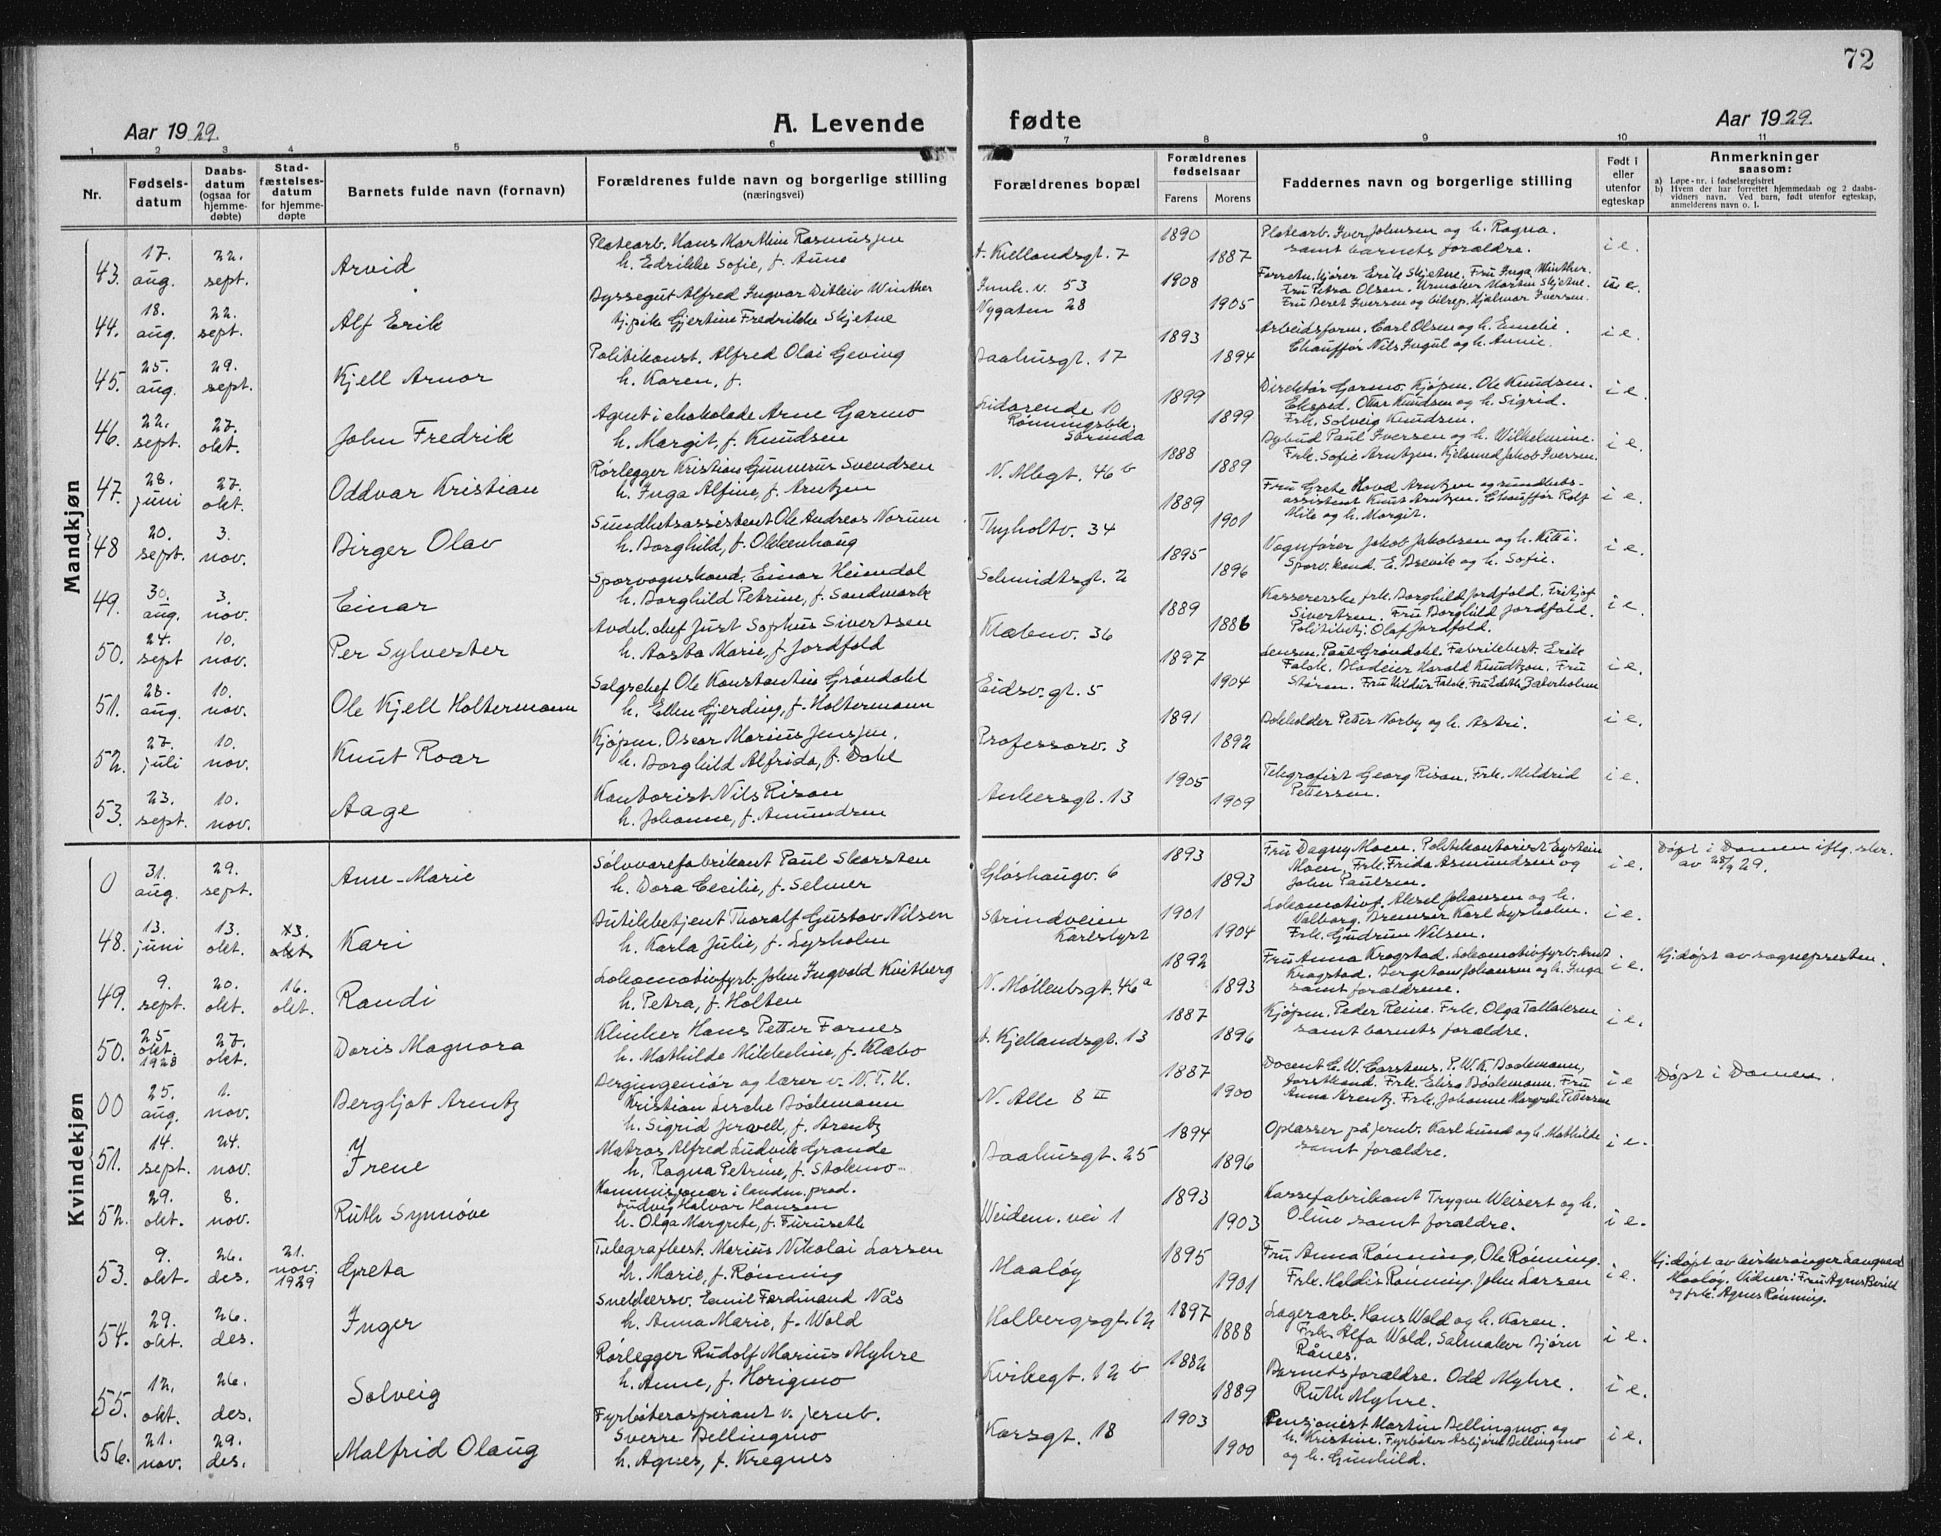 72
Aar 1929.
A. Levende fødte
Aar 1929.
1 2 3 4 5 6 7 8 9 10 11
Nr.
Fødsels-
datum
Daabs-
datum
(ogsaa for
hjemme-
døbte)
Stad-
fæstelses-
datum
for hjemme-
døpte
Barnets fulde navn (fornavn)
Forældrenes fulde navn og borgerlige stilling
(næringsvei)
Forældrenes bopæl
Forældrenes
fødselsaar
Farens Morens
Faddernes navn og borgerlige stilling
Født i
eller
utenfor
egteskap
Anmerkninger
saasom:
a) Løpe-nr. i fødselsregistret
b) Hvem der har forrettet hjemmedaab og 2 daabs-
vidners navn. Ved barn, født utenfor egteskap,
anmelderens navn o. l.
Mandkjøn
43. 17. aug. 22. sept. Arvid
Platearb. Hans Marthin Rasmussen
h. Edrikke Sofie, f. Aune
A. Kiellandsgt. 7
1890 1887
Platearb. Iver Johnsen og h. Ragna.
samt barnets forældre.
i e.
44. 18. aug. 22. sept. Alf Erik
Dyssegut Alfred Ingvar Ditlev Winther
tj.pike Gjertine Fredrikke Skjetne
Innh. v. 53
Nygaten 28
1908 1905
Forretn.kjører Erik Skjetne. Fru Inga Winther.
Fru Petra Olsen. Urmaker Morten Skjetne.
Fru Beret Iversen og bilrep. Hjalmar Iversen.
u e.
45. 25. aug. 29. sept. Kjell Arnor
Politikonst. Alfred Olai Geving
h. Karen, f.
Daahusgt. 17
1893 1894
Arbeidsform. Carl Olsen og h. Emelie.
Chauffør Nils Ingul og h. Annie.
i e.
46. 22. sept. 27. okt. John Fredrik
Agent i chokolade Arne Garmo
h. Margit, f. Knudsen
Lidarende 10
Rønningsbk.
Strinda
1899 1899
Direktør Garmo. Kjøpm. Ole Knudsen.
Eksped. Ottar Knudsen og h. Sigrid.
Frk. Solveig Knudsen.
i e.
47. 28. juni 27. okt. Oddvar Kristian
Rørlegger Kristian Gunnerus Svendsen
h. Inga Alfine, f. Arntzen
N. Allegt. 46 b
1888 1889
Bybud Paul Iversen og h. Wilhelmine.
Frk. Sofie Arntzen. Kjelsmed Jakob Iversen.
i e.
48 20. sept. 3. nov. Birger Olav
Sundhetsassistent Ole Andreas Norum
h. Borghild, f. Olkkenhaug
Thyholtv. 34
1889 1901
Fru Grete Hovd Arntzen og sundhets-
assistent Knut Arntzen. Chauffør Rolf
Mile og h. Margit.
i e.
49. 30. aug. 3. nov. Einar
Sporvognskond. Einar Heimdal
h. Borghild Petrine, f. Sandmark
Schmidtsgt. 2
1895 1896
Vognfører Jakob Jakobsen og h. Kitti.
Sporv.kond. E. Brevik og h. Sofie.
i e.
50. 24. sept 10. nov. Per Sylvester
Avdel.chef Just Sophus Sivertsen
h. Aasta Marie, f. Jordfald
Klæbuv. 36
1889 1886
Kassererske frk. Borghild Jordfald. Fritjof
Sivertsen. Fru Borghild Jordfald.
Politibetj. Olaf Jordfald.
i e.
51. 28. aug. 10. nov. Ole Kjell Holtermann
Salgschef Ole Konstantin Grøndahl
h. Ellen Gjerding, f. Holtermann
Eidsv.gt. 5
1897 1904
Lensm. Paul Grøndahl. Fabrikbest. Erik
Falck. Harald Knudtzon. Fru
Støren. Fru Hildur Falck. Fru Edith Zaterholm
i e.
52. 27. juli 10. nov. Knut Roar
Kjøpm. Oscar Marius Jenssen.
h. Borghild Alfrida, f. Dahl
Professorv. 3
1891 1892
Bokholder Petter Norby og h. Astri.
i e.
53. 23. sept. 10. nov. Aage
Kontorist Nils Risan
h. Johanne, f. Amundsen
Ankersgt. 13
1905 1909
Telegrafist Georg Risan. Frk. Mildrid
Pettersen.
i e.
Kvindekjøn
0 31. aug. 29. sept. Ann-Marie
Sølvvarefabrikant Paul Skorsten
h. Dora Cecilie, f. Selmer
Gløshaugv. 6
1893 1893
Fru Dagny Moen. Politikontorist Eystein
Moen. Frk. Frida Asmundsen og
John Paulsen.
i e.
Døpt i Domen iflg. skr.
av 28/9 29.
48. 13. juni 13. okt. 13. okt Kari
Butikbetjent Thoralf Gustav Nilsen
h. Karla Julie, f. Lysholm
Strindveien
Karlslyst
1901 1904
Lokomotivf. Aksel Johansen og h.
Valborg. Bremser Karl Lysholm.
Frk. Gudrun Nilsen.
i e.
49. 9. sept. 20. okt. 16. okt. Randi
Lokomotivfyrb. John Ingvald Kvitberg
h. Petra, f. Holten
N. Møllenbgt. 46 a
1892 1893
Fru Anna Krogstad. Lokomotivfyrb. Knut
Krogstad. Johansen og h. Inga
samt forældrene.
i e.
Hj.døpt av sognepresten.
50. 25. okt. 1928 27. okt. Doris Magnora
Klinker Hans Petter Fornes
h. Mathilde Mikkeline, f. Klæbo
A. Kjellandsgt. 13
1887 1896
Kjøpm. Peder Reina. Frk. Olga Tallaksen
samt barnets forældre.
i e.
00 25. aug. 1. nov. Bergljot Arentz
Bergingeniør og lærer v. N. T. H.
Kristian Lerche Bødtmann
h. Sigrid Jerwell, f. Arentz
N. Alle 8 II
1887 1900
Docent C. W. Carstens. P. W. K. Bødtmann,
forstkand. Frk. Elisa Bødtmann. Fru
Anna Arentz. Frk. Johanne Margrete Petersen
i e
Døpt i Domen.
51. 14. sept. 24. nov. Irene
Y
Matros Alfred Ludvik Grande
h. Ragna Petrine, f. Stokmo
Daahusgt. 25
1894 1896
Opasser på jernb. Karl Lund og h. Mathilde
samt forældre.
i e.
52. 29. okt. 8. nov. Ruth Synnøve
Kommisjonær i landm. prod.
Ludvig Halvar Hansen
h. Olga Margrete, f. Furuseth
Weidem. vei 1
1893 1903
Kassefabrikant Trygve Weisert og h.
Oline samt forældre.
i e.
53. 9. okt. 26. des. 21. nov. 1929 Greta
Telegrafbest. Marius Nikolai Larsen
h. Marie, f. Rønning
Maaløy
1895 1901
Fru Anna Rønning, Ole Rønning.
Frk. Haldis Rønning. John Larsen
i e.
Hj.døpt av kirkesanger Langvad
Maaløy. Vidner: Fru Agnes
og frk. Agnes Rønning.
54. 29. okt 26. des. Inger
Snekkersv. Emil Ferdinand Nås
h. Anna Marie, f. Wold
Holbergsgt. 12
1897 1888
Lagerarb. Hans Wold og h. Karen.
Frk. Alfa Wold. Salmaker Bjørn
Rånes.
i e.
55. 12. okt. 26. des. Solveig
Rørlegger Rudolf Marius Myhre
h. Anne, f. Horigmo
Kvikegt. 12 b
1882 1889
Barnets forældre. Odd Myhre.
Ruth Myhre.
i e.
56. 21. nov. 29. des. Malfrid Olaug
Fyrbøteraspirant v. jernb.
Sverre Dellingmo
h. Agnes, f. Kregnes
Korsgt. 18
1903 1900
Pensjonist Martin Dellingmo og
h. Kristine. Fyrbøter Asbjørn Dellingmo
og h. Gunhild.
i e.